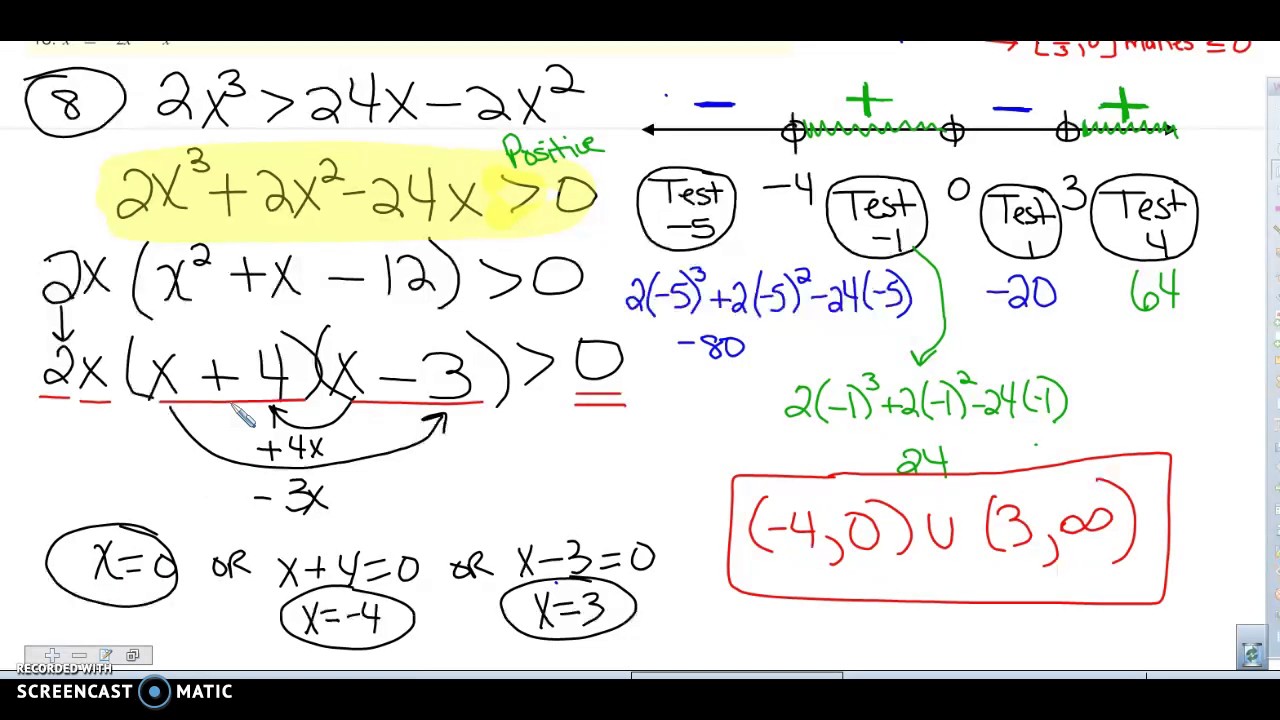 → [ , 0] Makes ≤ 0
8 2x³ > 24x − 2x²
Positive
2x³ + 2x² − 24x > 0
2x (x² + x − 12) > 0
2x (x + 4)(x − 3) > 0
+4x
− 3x
x=0 OR x+4=0 OR x−3=0
x=−4 x=3
− + − +
Test −5 −4 Test −1 0 Test 1 3 Test 4
2(−5)³+2(−5)²−24(−5) −20 64
−80
2(−1)³+2(−1)²−24(−1)
24
(−4,0) ∪ (3,∞)
RECORDED WITH
SCREENCAST MATIC